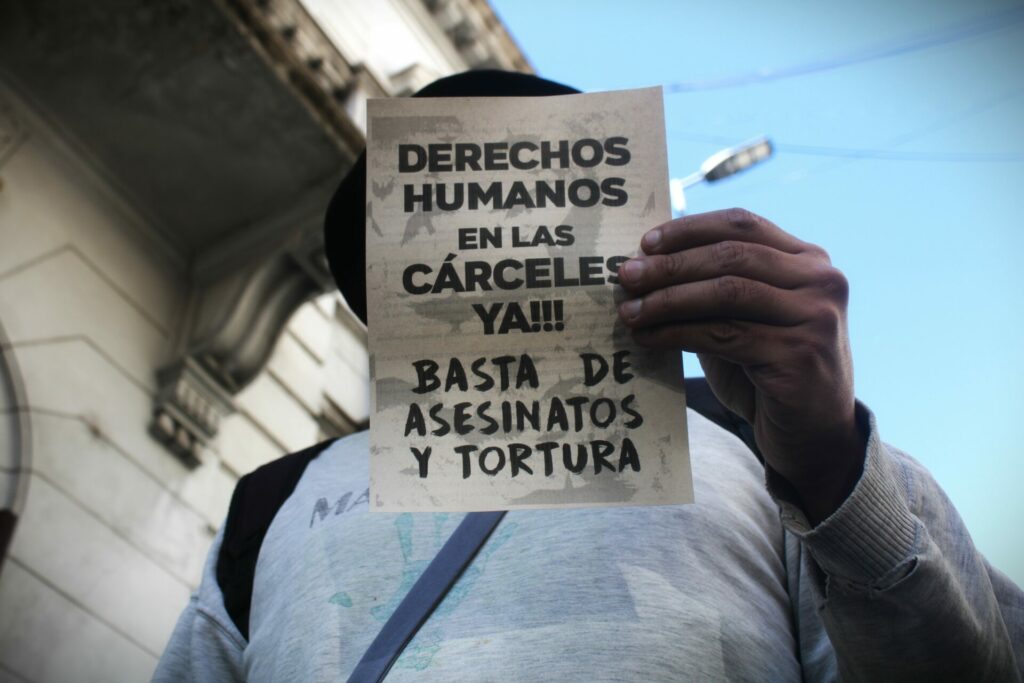 DERECHOS
HUMANOS
EN LAS
CÁRCELES
YA!!!
BASTA DE
ASESINATOS
Y TORTURA